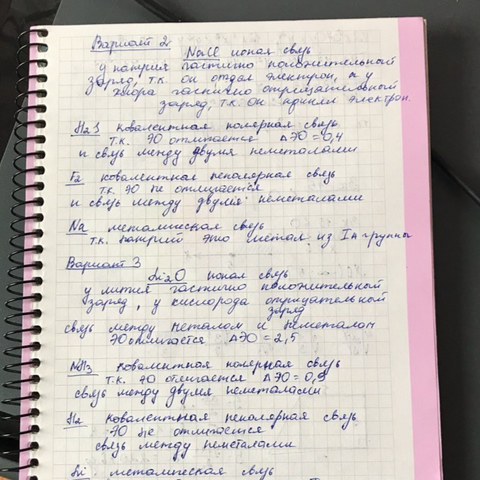 Вариант 2. NaCl ионая связь
у натрия частично положительный
заряд, т.к. он отдал электрон, а у
хлора частично отрицательный
заряд, т.к. он принял электрон.
H₂S ковалентная полярная связь
т.к. ЭО отличается ΔЭО = 0,4
и связь между двумя неметалами
F₂ ковалентная неполярная связь
т.к. ЭО не отличается
и связь между двумя неметалами
Na металическая связь
т.к. натрий это метал из IA группы
Вариант 3
Li₂O ионая связь
у лития частично положительный
заряд, у кислорода отрицательный
заряд
связь между металом и неметалом
ЭО отличается ΔЭО = 2,5
NH₃ ковалентная полярная связь
т.к. ЭО отличается ΔЭО = 0,9
связь между двумя неметалами
H₂ ковалентная неполярная связь
ЭО не отличается
связь между неметалами
Li металическая связь